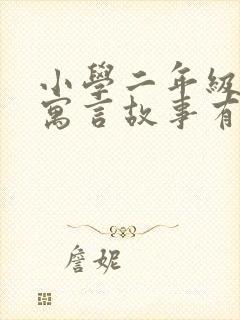 小學二年級
寓言故事有
詹妮